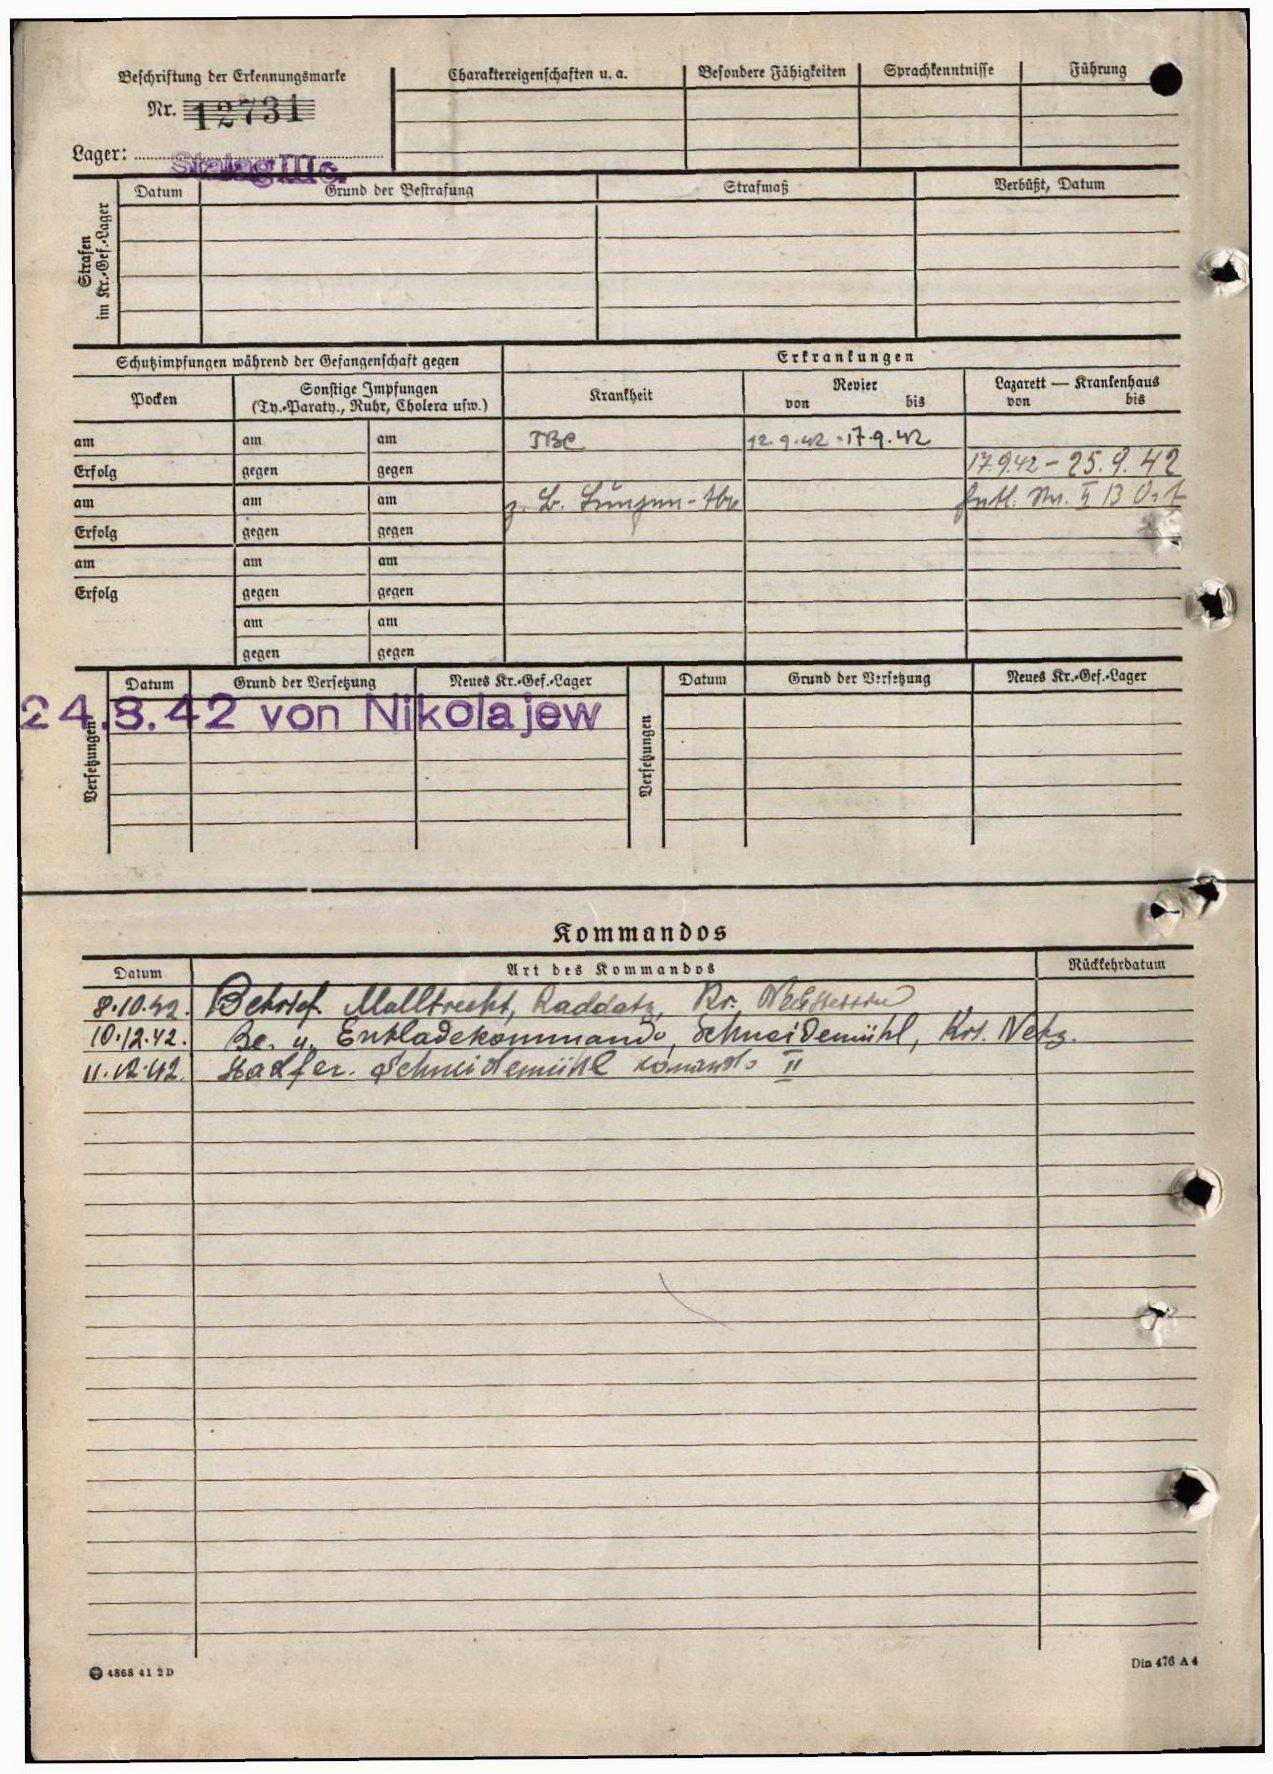 Beschriftung der Erkennungsmarke
Nr. 12731
Lager: Stalag III c.
Charaktereigenschaften u. a.
Besondere Fähigkeiten
Sprachkenntnisse
Führung
Strafen im Kr.-Gef.-Lager
Datum
Grund der Bestrafung
Strafmaß
Verbüßt, Datum
Schutzimpfungen während der Gefangenschaft gegen
Erkrankungen
Pocken
Sonstige Impfungen
(Ty.-Paraty., Ruhr, Cholera usw.)
Krankheit
Revier
von bis
Lazarett — Krankenhaus
von bis
am am am TBC 12.9.42 - 17.9.42
Erfolg gegen gegen 17.9.42 - 25.9.42
am am am z. B. Lungen-Tbc
Erfolg gegen gegen
am am am
Erfolg gegen gegen
am am
gegen gegen
Versetzungen
Datum Grund der Versetzung Neues Kr.-Gef.-Lager
24.8.42 von Nikolajew
Versetzungen
Datum Grund der Versetzung Neues Kr.-Gef.-Lager
Kommandos
Datum Art des Kommandos Rückkehrdatum
8.10.42. Raddatz, Kr. Neustettin
10.12.42. Be. u. Entladekommando, Schneidemühl, Krs. Netz.
11.12.42. Schneidemühl komando II
4868 41 2 D
Din 476 A 4